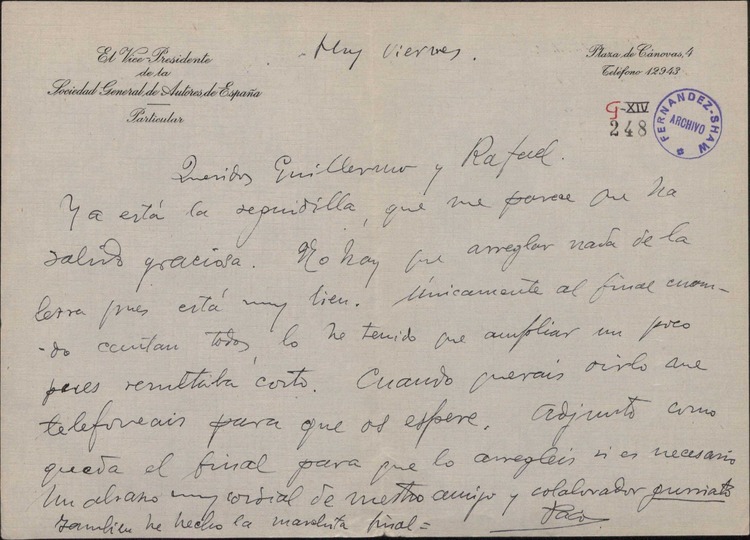 El Vice Presidente
de la
Sociedad General de Autores de España
Particular
Hoy viernes.
Plaza de Cánovas, 4
Teléfono 12943
G-XIV
248
FERNANDEZ-SHAW
ARCHIVO
Queridos Guillermo y Rafael.
Ya está la seguidilla, que me parece que ha
salido graciosa. No hay que arreglar nada de la
letra pues está muy bien. Unicamente al final cuan-
-do cantan todos lo he tenido que ampliar un poco
pues resultaba corto. Cuando querais oirlo me
telefoneais para que os espere. Adjunto como
queda el final para que lo arregleis si es necesario
Un abrazo muy cordial de vuestro amigo y colaborador
Paco
Tambien he hecho la marchita final=